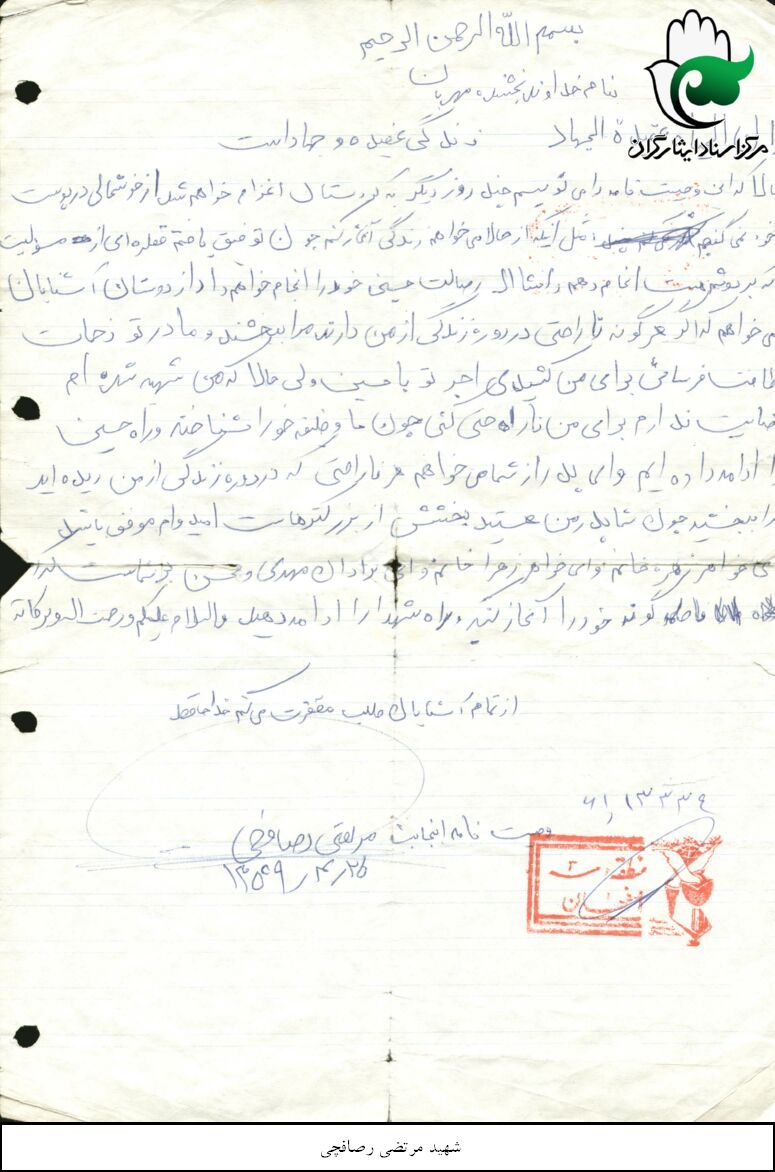 بسم الله الرحمن الرحیم
بنام خداوند بخشنده مهربان
مرکز اسناد ایثارگران
الجهاد زندگی عقیده و جهاد است
حالا که این وصیت نامه را می نویسم چند روز دیگر به کردستان اعزام خواهم شد از خوشحالی در پوست
خود نمی گنجم مثل آنکه از حالا می خواهم زندگی آغاز کنم چون توفیق یافتم قطره ای از مسولیت
که بر دوشم است انجام دهم و انشاالله رسالت حسینی خود را انجام خواهم داد از دوستان آشنایان
می خواهم که اگر هرگونه ناراحتی در دوره زندگی از من دارند مرا ببخشند و مادر تو زحمات
طاقت فرسائی برای من کشیدی اجر تو با حسین ولی حالا که من شهید شده ام
رضایت ندارم برای من ناراحتی کنی چون ما وظیفه خود را شناخته و راه حسین
را ادامه داده ایم و ای پدر از شما می خواهم هر ناراحتی که در دوره زندگی از من دیده اید
مرا ببخشید چون شما پدر من هستید بخشش از بزرگترهاست امیدوام موفق باشید
ای خواهر زهره خانم و ای خواهر زهرا خانم و ای برادران مهدی و محسن بر شماست که
گونه خود را آغاز کنید و راه شهدا را ادامه دهید والسلام علیکم و رحمت اله و برکاته
از تمام آشنایان طلب مغفرت می کنم خداحافظ
۶۱٫۱۳۳۳۴
وصیت نامه اینجانب مرتضی رصافچی
۱۳۵۹٫۴٫۲۵
منطقه ۲
شهید مرتضی رصافچی